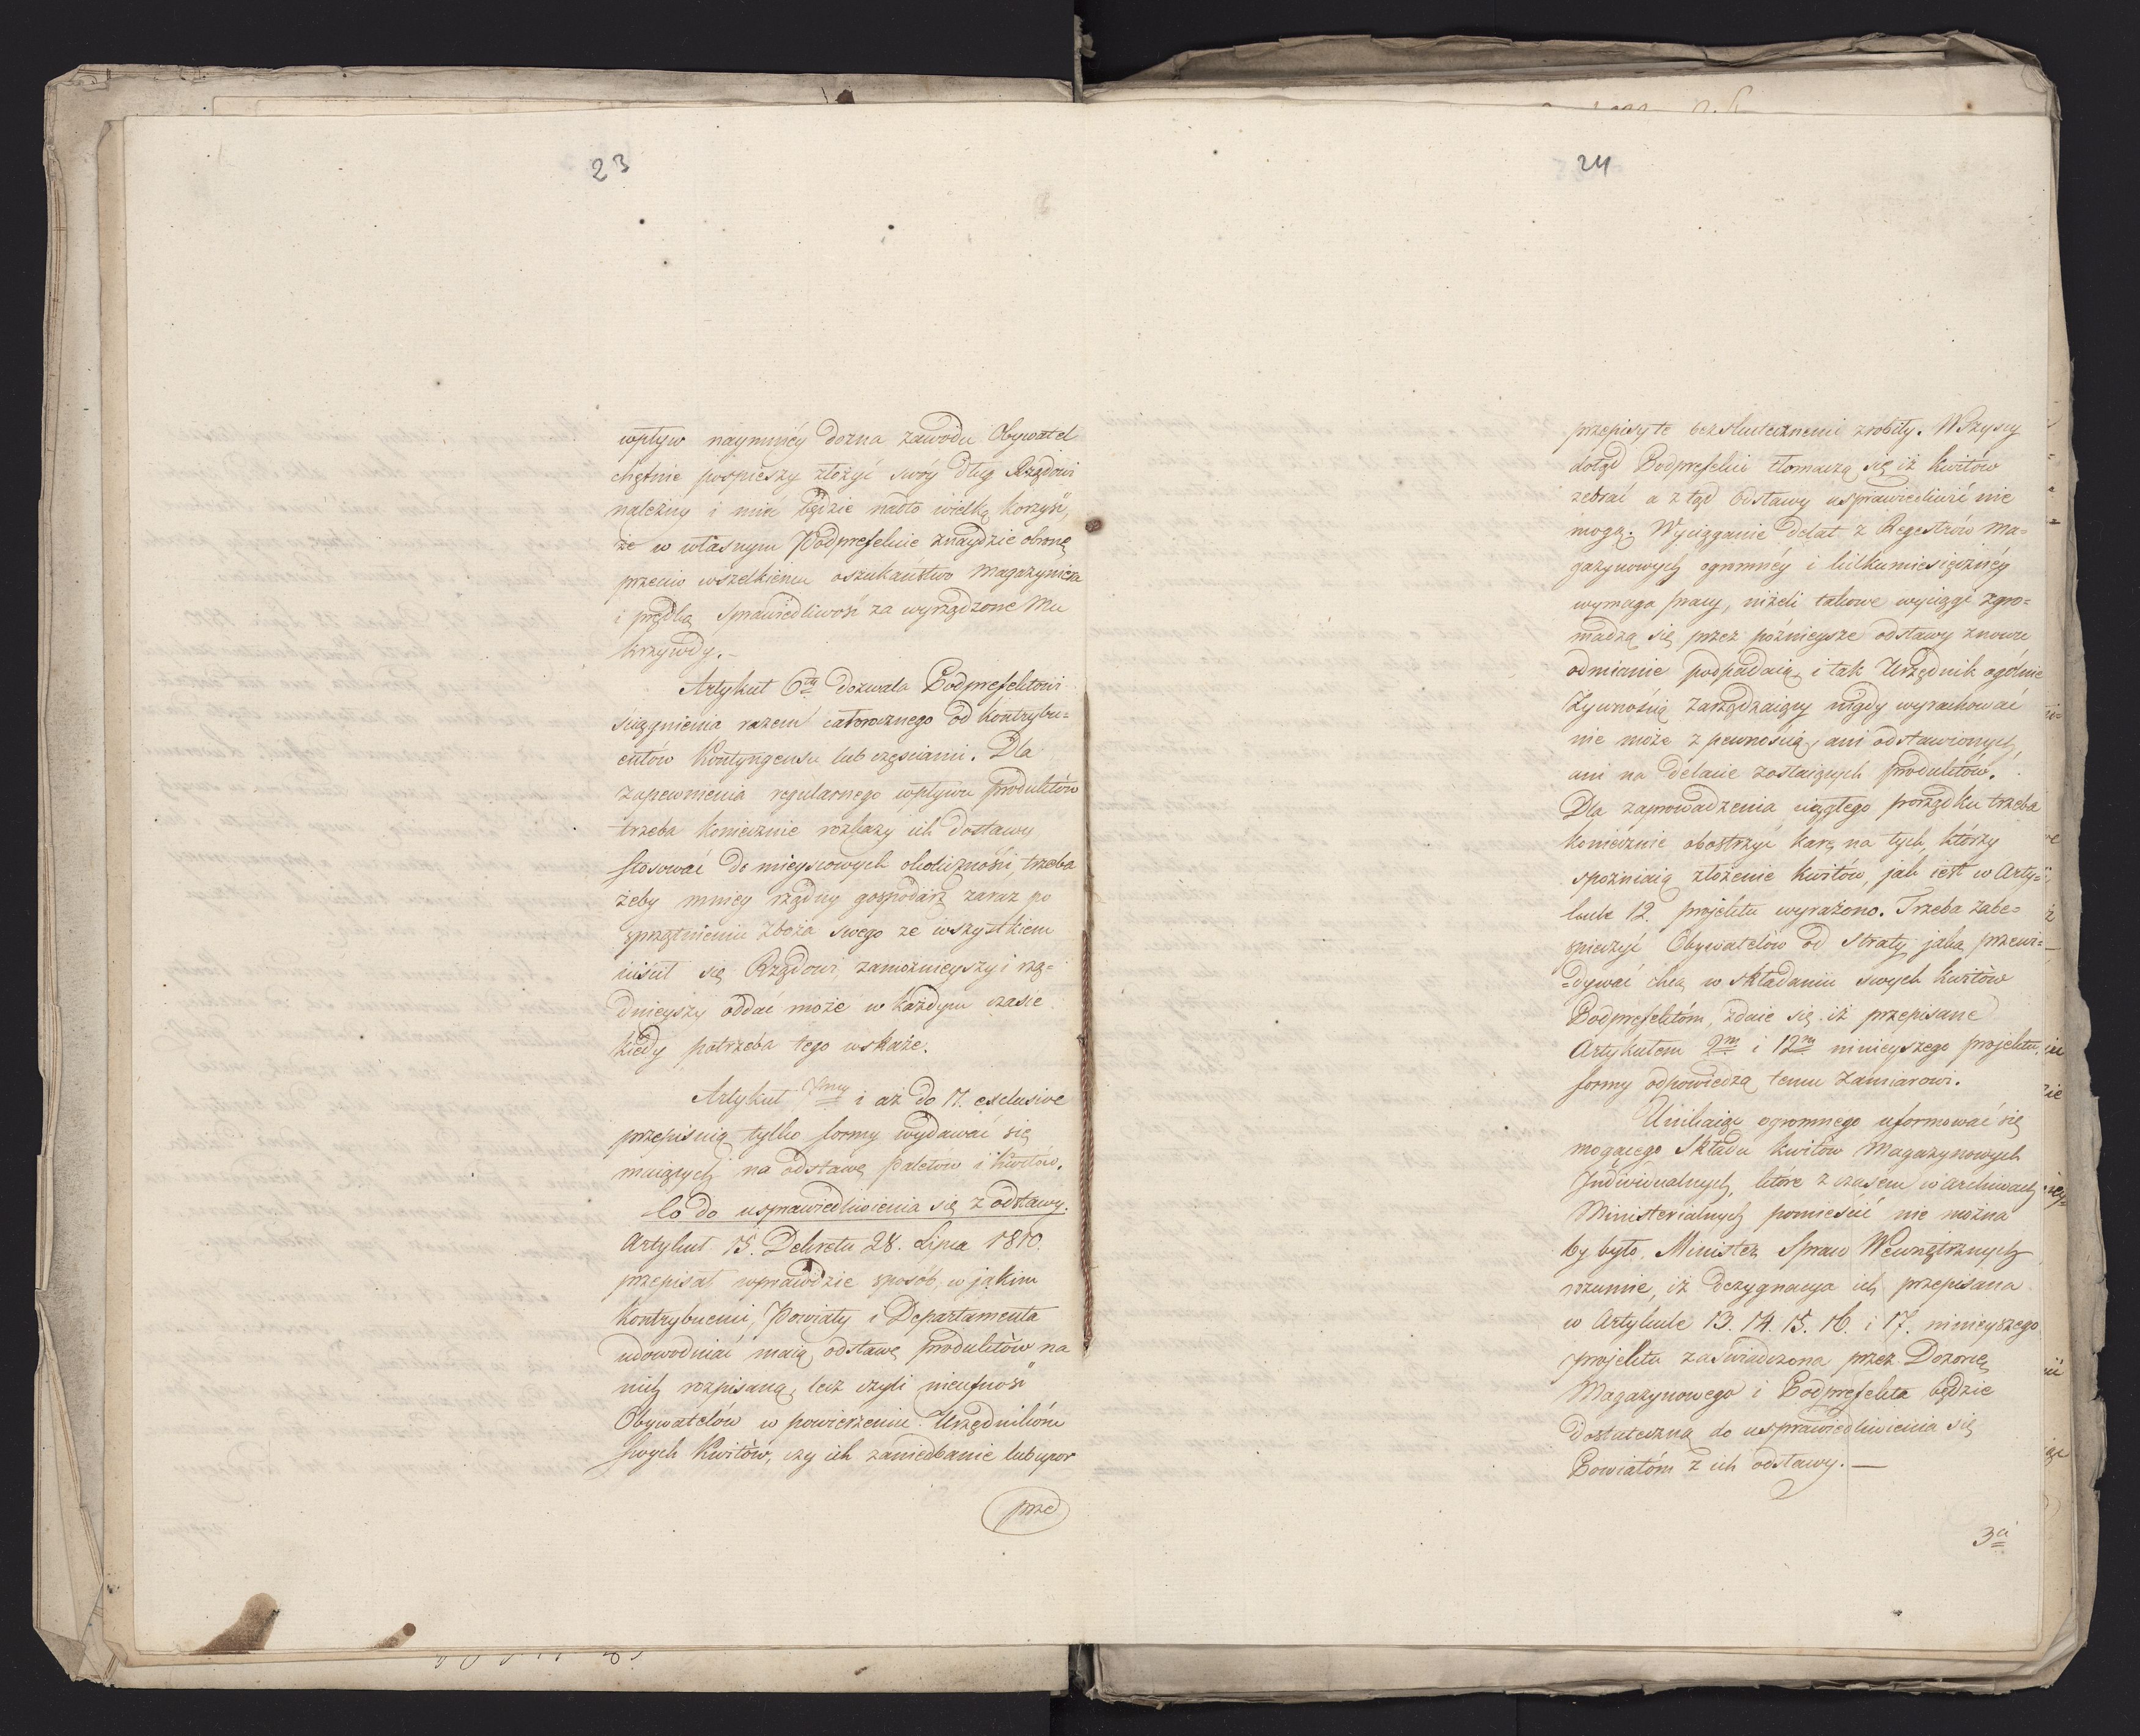 23
wpływ naymniéy dozna zawodu Obywatel
chętnie pospieszy złożyć swóy dług Rządowi
należny i mieć będzie nadto wielką korzyść,
że w własnym Podprefekcie znaydzie obronę
przeciw wszelkiemu oszukaństwo Magazyniera
i prędką Sprawiedliwość za wyrządzone Mu
krzywdy.–
Artykuł 6ty dozwala Podprefektowi
ściągnienia razem całorocznego od Kontrybu=
entów Kontyngensu lub częściami. Dla
zapewnienia regularnego wpływu produktów
trzeba koniecznie rozkazy ich dostawy
stosować do mieyscowych okoliczności, trzeba
żeby mniey rządny gospodarz zaraz po
sprzątnieniu zboża swego ze wszystkiem
uiścił się Rządowi, zamożnieyszy i rzą=
dnieyszy oddać może w każdym czasie
kiedy potrzeba tego wskaże.
Artykuł 7my i aż do 17. exclusive
przepisuią tylko formy wydawać się
maiących na odstawę paletow i kwitów.
Co do usprawiedliwienia się z odstawy.
Artykuł 15. Dekretu 28. Lipca 1810.
przepisał wprawdzie sposób, w jakim
Kontrybuenci, Powiaty i Departamenta
udowodniać maią odstawę produktòw na
nich rozpisaną, lecz czyli nieufność
Obywatelów w powierzeniu Urzędnikóm
swych Kwitòw, czy ich zaniedbanie lub upor
prze
24
przepisy te bezskutecznemi zrobiły. Wszyscy
dotąd Podprefekci tłomaczą się iż kwitów
zebrać a z tąd Odstawy usprawiedliwić nie
mogą. Wyciąganie delat z Regestrów Ma=
gazynowych ogromnéy i kilkumiesięcznéy
wymaga pracy, niżeli takowe wyciągi zgro=
madzą się, przez późnieysze odstawy znowu
odmianie podpadaią, i tak Urzędnik ogólnie
Żywnością zarządzaiący nigdy wyrachować
nie może z pewnością, ani odstawionych,
ani na délacie zostaiących produktów.
Dla zaprowadzenia ciągłego porządku trzeba
koniecznie obostrzyć karę na tych, którzy
spozniaią złożenie kwitów, jak iest w Arty=
kule 12. projektu wyrażono. Trzeba zabe=
spieczyć Obywatelów od straty jaką przewi=
=dywać chcą w składaniu swych kwitòw
Podprefektóm, zdaie się iż przepisane
Artykułem 2m i 12m ninieyszego projektu,
formy odpowiedzą temu zamiarowi.
Unikaiąc ogromnego uformować się
mogącego Składu kwitów Magazynowych
Individualnych, które z czasem w archiwach
Ministerialnych pomieścić nie można
by było, Minister Spraw Wewnętrznych
rozumie, iż dezygnacya ich przepisana
w Artykule 13. 14. 15. 16. i 17. ninieyszego
projektu zaświadczona przez Dozorcę
Magazynowego i Podprefekta będzie
dostateczną do usprawiedliwienia się
Powiatóm z ich odstawy.—
3ci